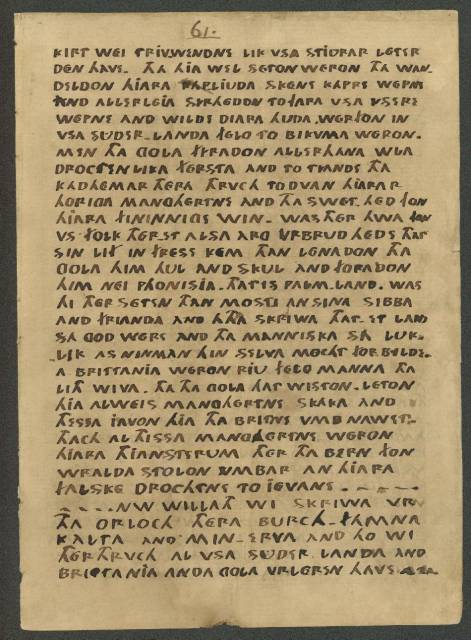 61.
KIRT WEI TRIUWENDNE LIK VSA STIURAR LETER
DEN HAVE. THA HIA WEL SETON WERON THA WAN-
DELDON HIARA FARLIUDA SKENE KAPRE WEPNE
AND ALLERLEIA SYRHEDON TO FARA VSA YSERE
WEPNE AND WILDE DIARA HUDA, WERFON IN
VSA SUDER-LANDA FELO TO BIKVMA WERON.
MEN THA GOLA FYRADON ALLERHANA WLA
DROCHTENLIKA FERSTA AND TO TYANDE THA
KADHEMAR THERA THRVCH TODVAN HIARAR
HORIGA MANGHERTNE AND THA SWET-HED FON
HIARA FININNIGE WIN. WAS THER HWA FON
VS FOLK THER-ET ALSA ARG VRBRUD HEDE THAT
SIN LIF IN FRESE KEM THAN LENADON THA
GOLA HIM HUL AND SKUL AND FORADON
HIM NEI PHONISIA. THAT IS PALM-LAND. WAS
HI THER SETEN THAN MOSTI AN SINA SIBBA
AND FRIANDA AND ATHA SKRIWA THAT-ET LAND
SA GOD WERE AND THA MANNISKA SA LUK-
LIK AS NINMAN HIN SELVA MOCHT FORBILDE.
A BRITTANIA WERON RIU FELO MANNA THA
LITH WIVA. THA THA GOLA THAT WISTON. LETON
HIA ALWEIS MANGHERTNE SKAKA AND
THESSA IAVON HIA THA BRITNE VMB NAWET.
THACH AL THISSA MANGHERTNE WERON
HIARA THIANSTERUM THER THA BERN FON
WRALDA STOLON VMBAR AN HIARA
FALSKE DROCHTNE TO IEVANE.
NW WILLATH WI SKRIWA VR
THA ORLOCH THERA BURCH-FAMNA
KALTA AND MIN-ERVA AND HO WI
THER THRVCH AL VSA SUDER LANDA AND
BRITTANIA ANDA GOLA VRLEREN HAVE